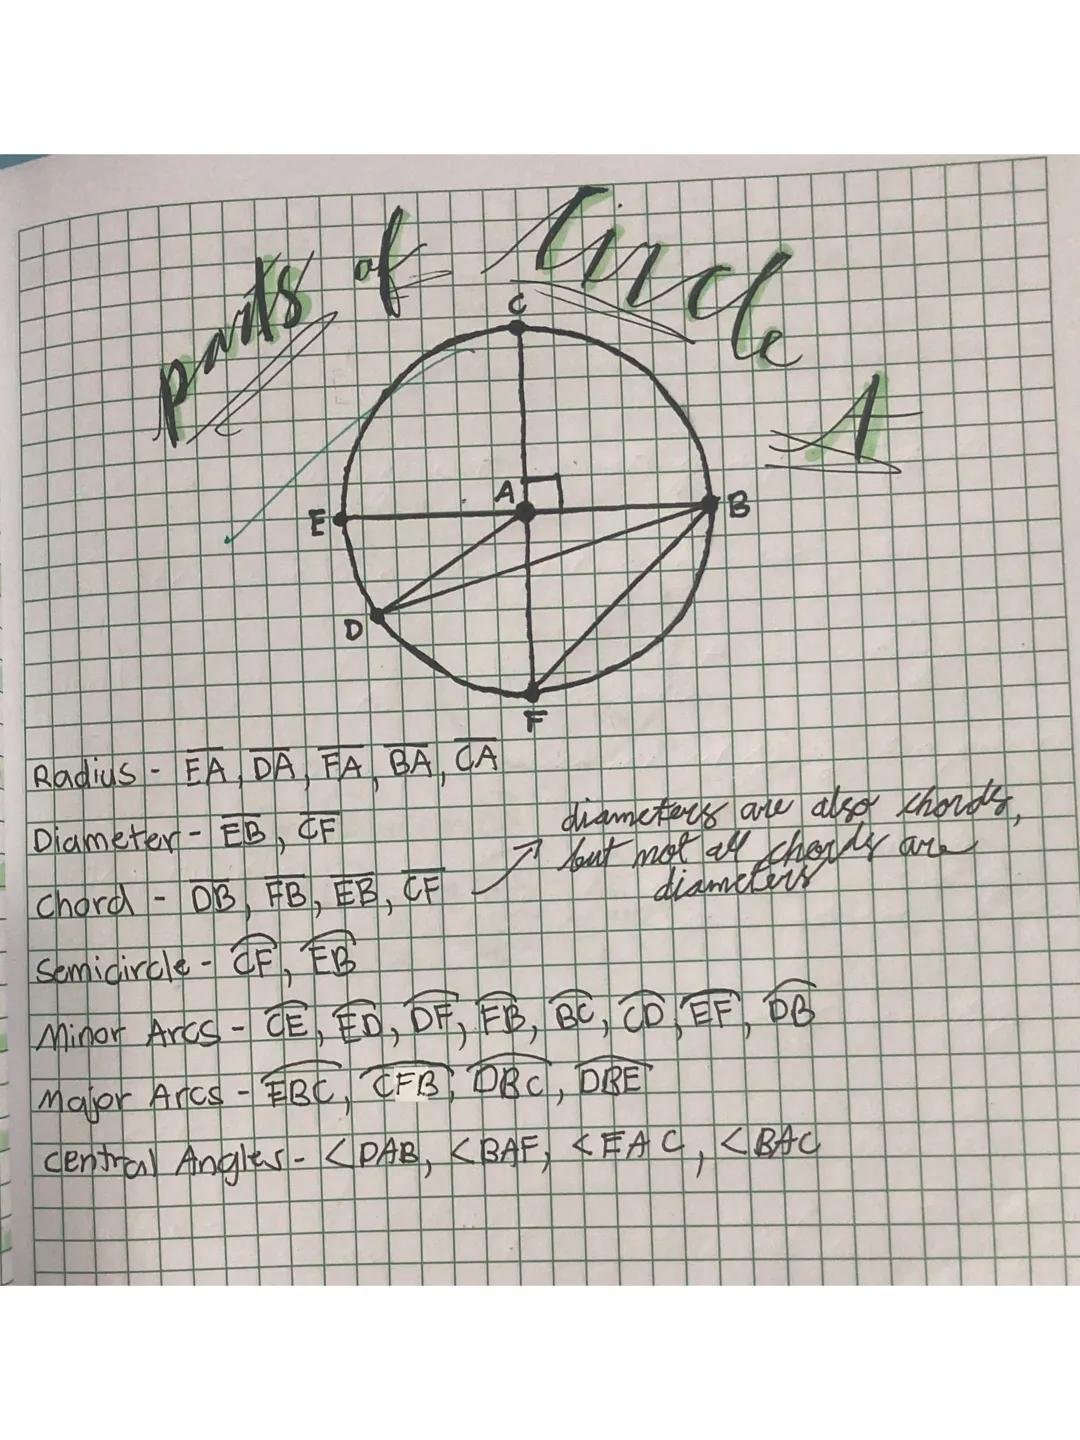 parts of Circle
A
C
A
E
B
D
F
Radius - EA, DA, FA, BA, CA
Diameter - EB, CF
diameters are also chords,
but not all chords are
diameters
Chord - DB, FB, EB, CF
Semicircle - CF, EB
Minor Arcs - CE, ED, DF, FB, BC, CD, EF, DB
Major Arcs - EBC, CFB, DBC, DBE
Central Angles - <DAB, <BAF, <EAC, <BAC